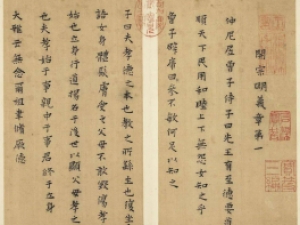 開宗明義章第一
仲尼居曾子侍子曰先王有至德要道
以順天下民用和睦上下無怨女知之乎
曾子避席曰參不敏何足以知之
子曰夫孝德之本也教之所繇生也復坐吾
語女身體髮膚受之父母不敢毀傷孝之
始也立身行道揚名於後世以顯父母孝之
終也夫孝始于事親中于事君終于立身
大雅云無念爾祖聿脩厥德